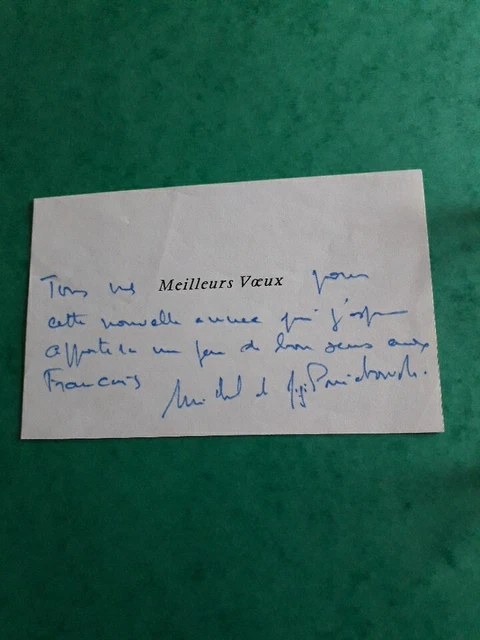 Tous nos Meilleurs Vœux pour
cette nouvelle année qui j'espère
apportera un peu de bon sens aux
Français Michel et Gigi Poniatowski.